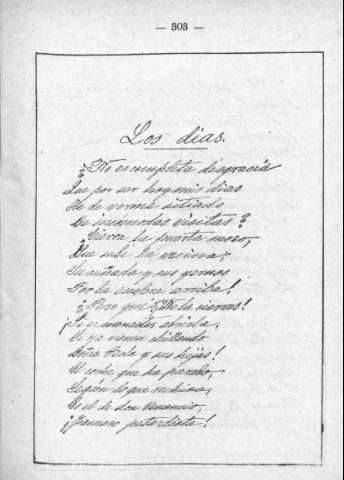 — 303 —
Los dias.
¿No es completa desgracia
Que por ser hoy mis dias
He de verme sitiado
De incómodas visitas?
Cierra la puerta mozo,
Que sube la vecina,
Su cuñada y sus yernos
Por la escalera arriba!
¿Pero que? No la cierras!
¡Si es menester abrirla,
Si ya vienen chillando
Doña Tecla y sus hijas!
El coche que ha parado,
Segun lo que rechina,
Es el de don Venancio,
¡Famoso petardista!